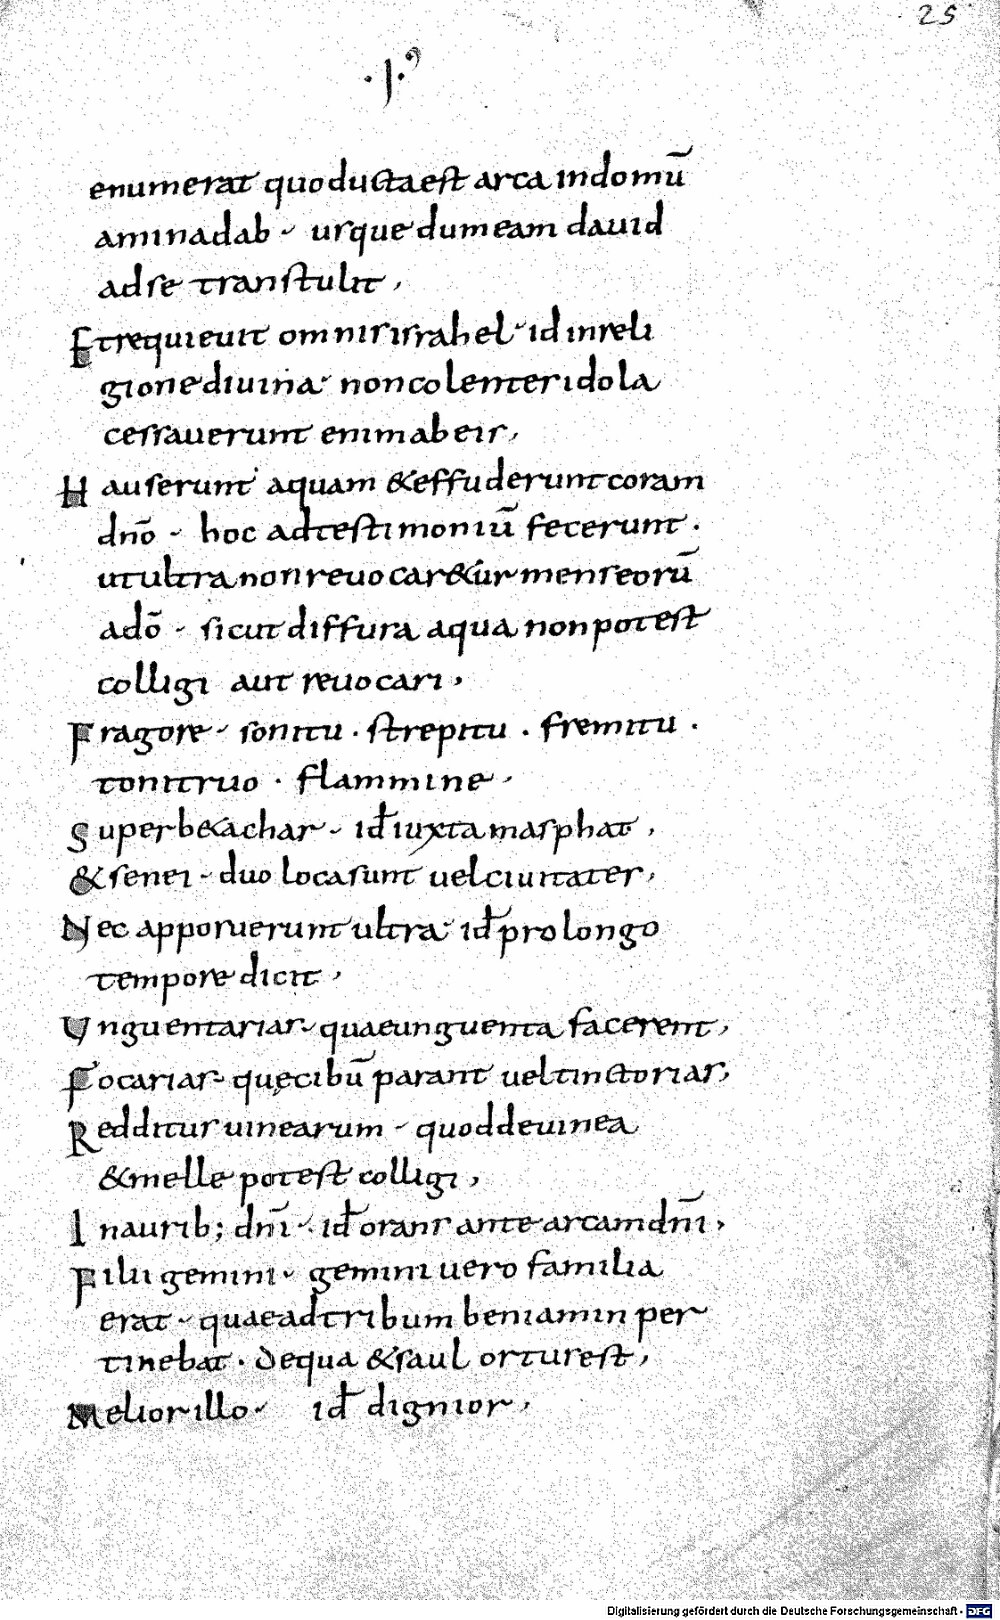 25
·I·⁹
enumerat quo ducta est arca in domū
aminadab - usque dum eam dauid
ad se transtulit,
Et requieuit omnis israhel - id in reli
gione diuina non colentes idola
cessauerunt enim ab eis,
Hauserunt aquam & effuderunt coram
dnō - hoc ad testimoniū fecerunt ·
ut ultra non reuocar&ur mens eorū
a dō - sicut diffusa aqua non potest
colligi aut reuocari,
Fragore - sonitu · strepitu · fremitu ·
tonitruo · flammine,
Super b&achar - id̄ iuxta masphat,
& senei - duo loca sunt uel ciuitates,
Nec apposuerunt ultra id̄ pro longo
tempore dicit,
Unguentarias - quae unguenta facerent,
Focarias - quę cibū parant uel tinctorias,
Redditus uinearum - quod de uinea
& melle potest colligi,
In aurib; dnī - id̄ orans ante arcam dnī,
Filii gemini - gemini uero familia
erat - quae ad tribum beniamin per
tinebat · de qua & saul ortus est,
Melior illo - id̄ dignior,
Digitalisierung gefördert durch die Deutsche Forschungsgemeinschaft - DFG